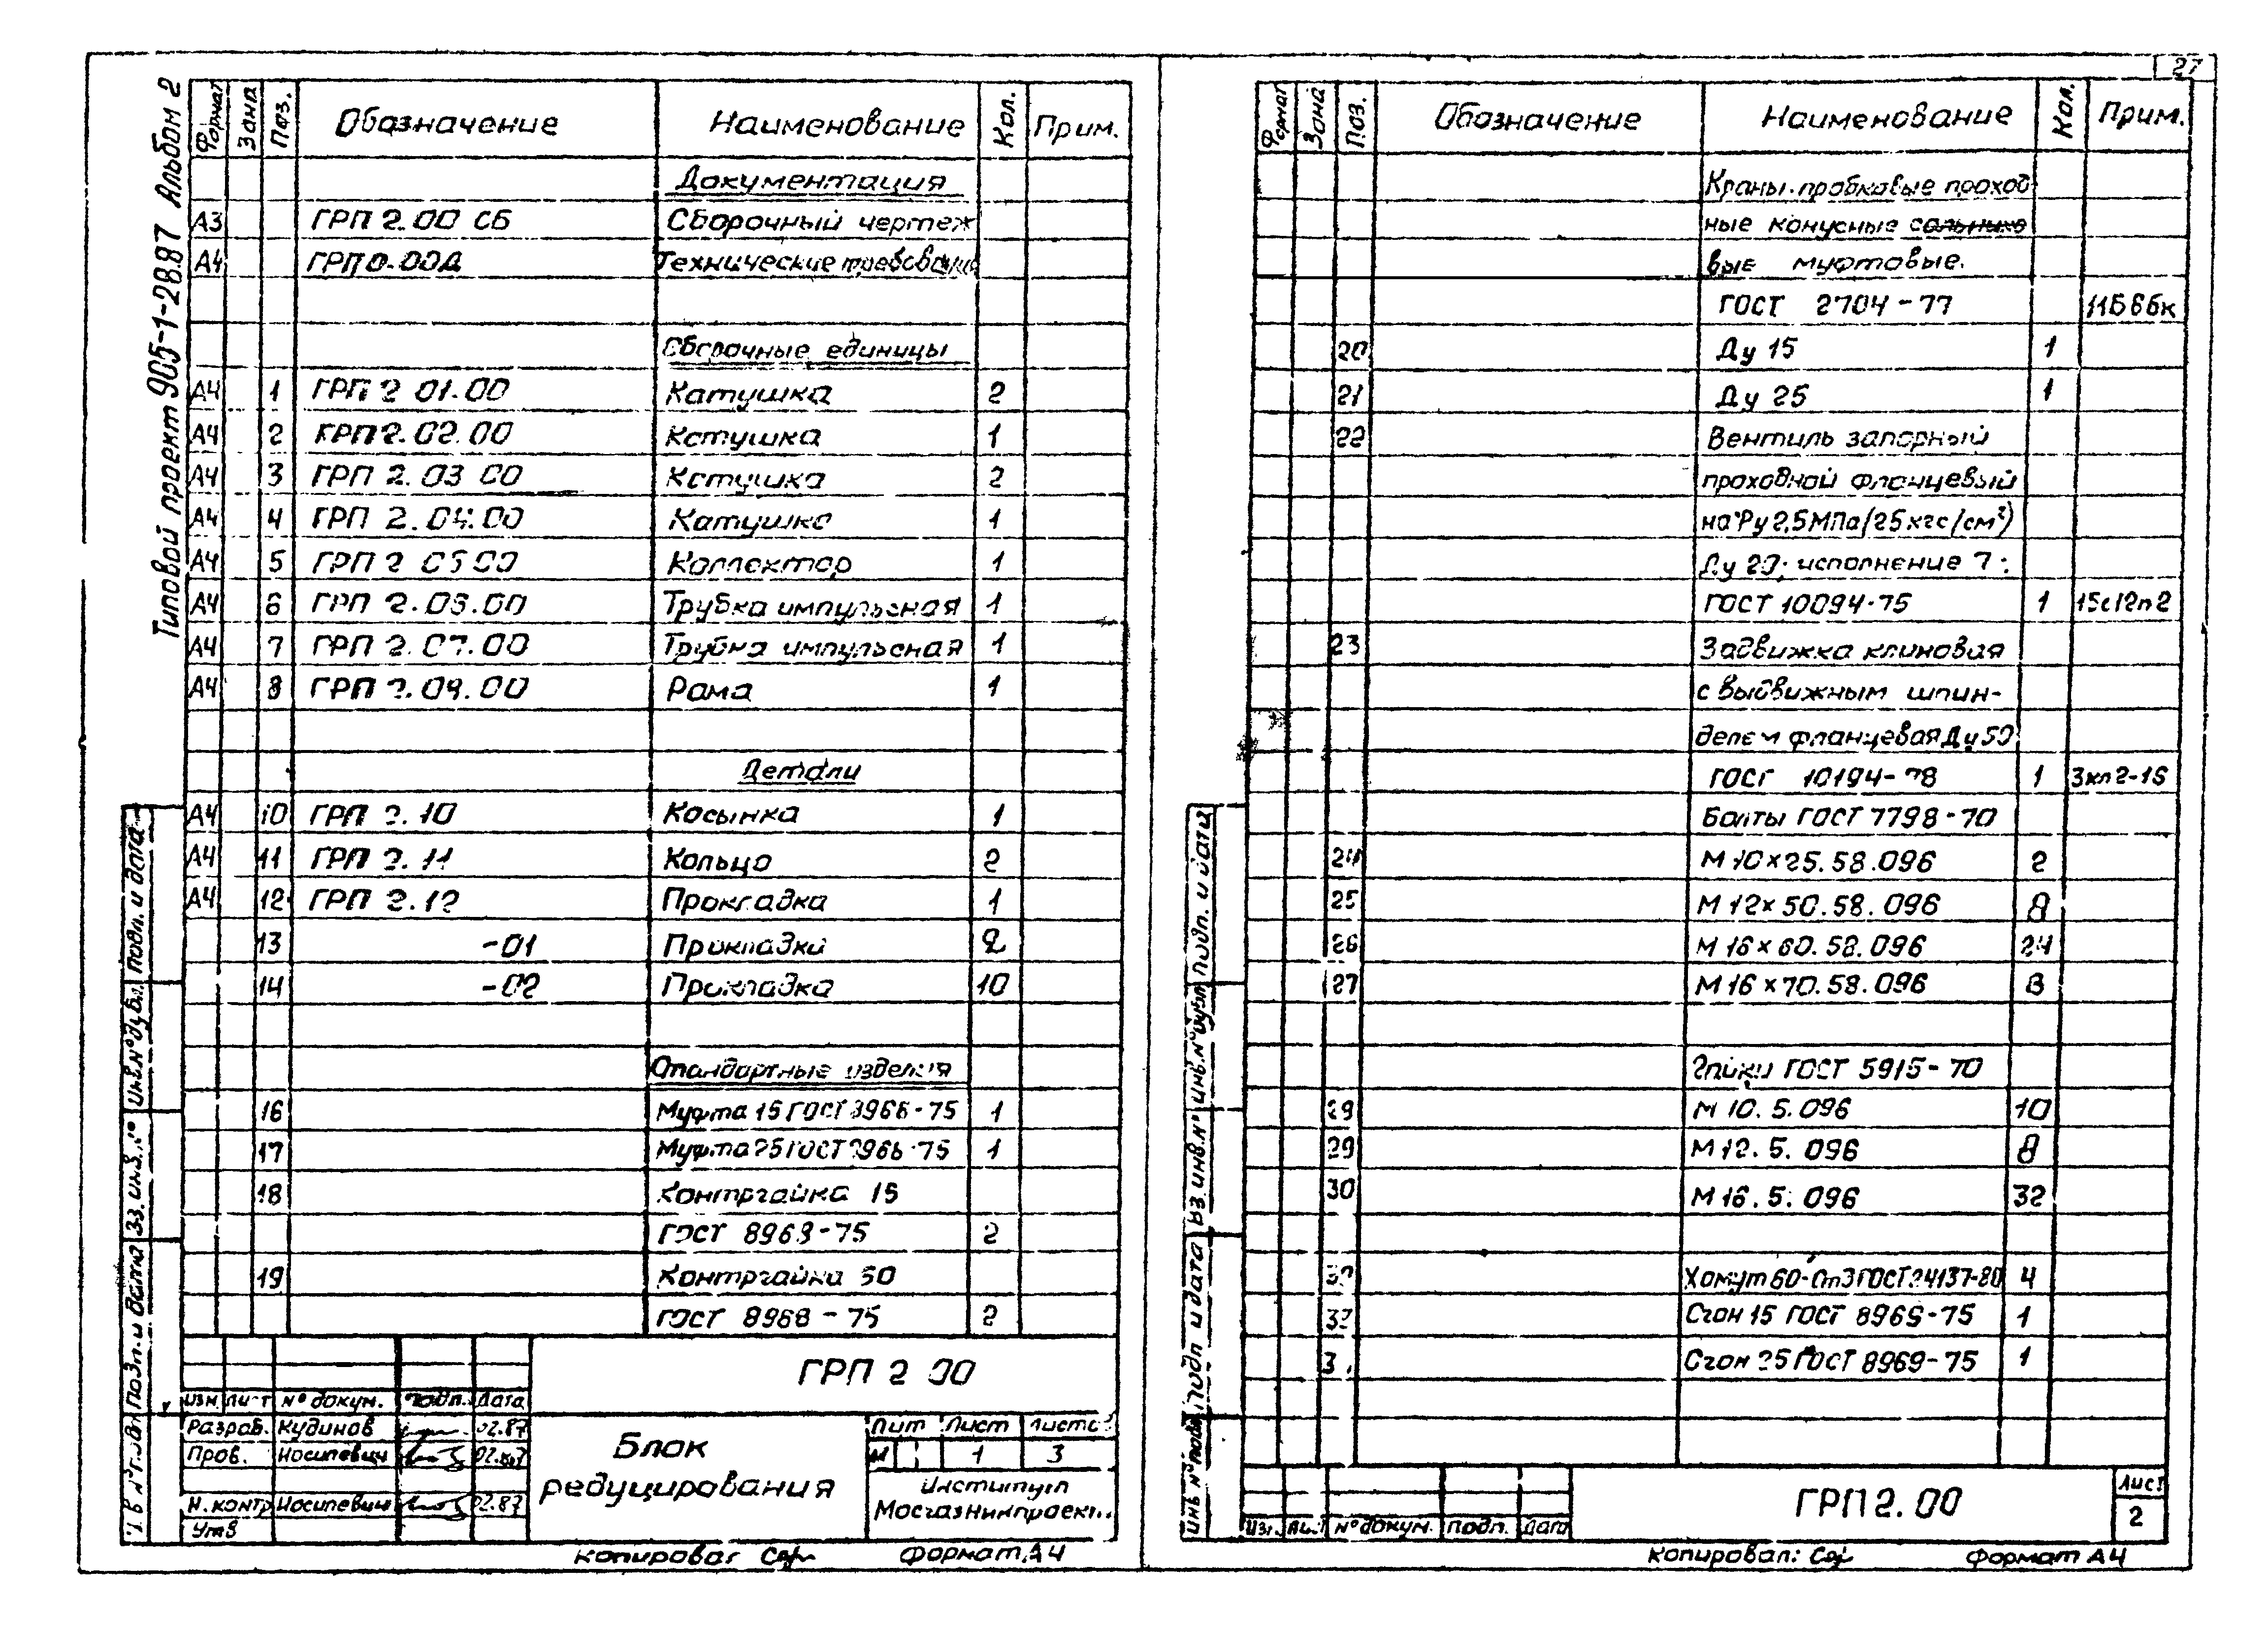 27
Типовой проект 905-1-28.87 Альбом 2
Формат Зона Поз. Обозначение Наименование Кол. Прим.
Документация
А3 ГРП 2.00 СБ Сборочный чертеж
А4 ГРП 0.00Д Технические требования
Сборочные единицы
А4 1 ГРП 2 01.00 Катушка 2
А4 2 ГРП 2.02.00 Катушка 1
А4 3 ГРП 2.03 00 Катушка 2
А4 4 ГРП 2.04.00 Катушка 1
А4 5 ГРП 2 05 00 Коллектор 1
А4 6 ГРП 2.06.00 Трубка импульсная 1
А4 7 ГРП 2.07.00 Трубка импульсная 1
А4 8 ГРП 2.09.00 Рама 1
Детали
А4 10 ГРП 2.10 Косынка 1
А4 11 ГРП 2.11 Кольцо 2
А4 12 ГРП 2.12 Прокладка 1
13 -01 Прокладка 2
14 -02 Прокладка 10
Стандартные изделия
16 Муфта 15 ГОСТ 8966-75 1
17 Муфта 25 ГОСТ 8966-75 1
18 Контргайка 15
ГОСТ 8968-75 2
19 Контргайка 50
ГОСТ 8968-75 2
ГРП 2 00
Изм. Лист № докум. Подп. Дата
Разраб. Кудинов 02.87
Пров. Иосилевич 02.87
Н.контр Иосилевич 02.87
Утв
Блок
редуцирования
Лит Лист Листов
И 1 3
Институт
Мосгазниипроект
Копировал Формат А4
Подп. и дата
Инв. № дубл.
Вз. инв. №
Подп. и дата
Инв № подл
Формат Зона Поз. Обозначение Наименование Кол. Прим.
Краны пробковые проход
ные конусные сальнико
вые муфтовые.
ГОСТ 2704-77 11Б6бк
20 Ду 15 1
21 Ду 25 1
22 Вентиль запорный
проходной фланцевый
на Ру 2,5 МПа (25 кгс/см²)
Ду 20; исполнение 7;
ГОСТ 10094-75 1 15с12п2
23 Задвижка клиновая
с выдвижным шпин-
делем фланцевая Ду 50
ГОСТ 10194-78 1 Зкл2-16
Болты ГОСТ 7798-70
24 М 10×25.58.096 2
25 М 12×50.58.096 8
26 М 16×60.58.096 24
27 М 16×70.58.096 8
Гайки ГОСТ 5915-70
М 10.5.096 10
29 М 12.5.096 8
30 М 16.5.096 32
Хомут 60-Ст3 ГОСТ 24137-80 4
Сгон 15 ГОСТ 8969-75 1
Сгон 25 ГОСТ 8969-75 1
Изм. Лист № докум. Подп. Дата
ГРП 2.00
Лист
2
Копировал: Формат А4
Подп. и дата
Инв. № дубл
Вз. инв. №
Подп и дата
Инв № подл